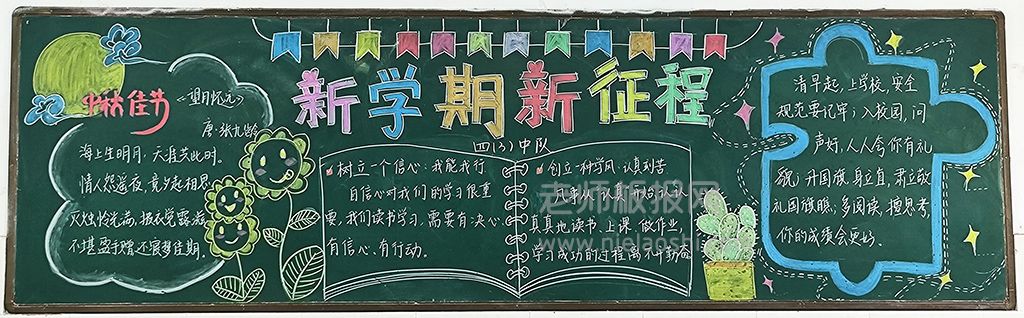 新学期新征程
四(3)中队
中秋佳节
《望月怀远》
唐·张九龄
海上生明月,天涯共此时。
情人怨遥夜,竟夕起相思。
灭烛怜光满,披衣觉露滋。
不堪盈手赠,还寝梦佳期。
树立一个信心:我能我行
自信心对我们的学习很重
要,我们读书学习,需要有决心、
有信心、有行动。
创立一种学风:认真刻苦
凡事
真真地读书、上课、做作业,
学习成功的过程离不开勤奋
清早起,上学校,安全
规范要记牢;入校园,问
声好,人人会你有礼
貌;升国旗,身立直,肃立敬
礼国旗瞧;多阅读,擅思考,
你的成绩会更好。
老师板报网
www.